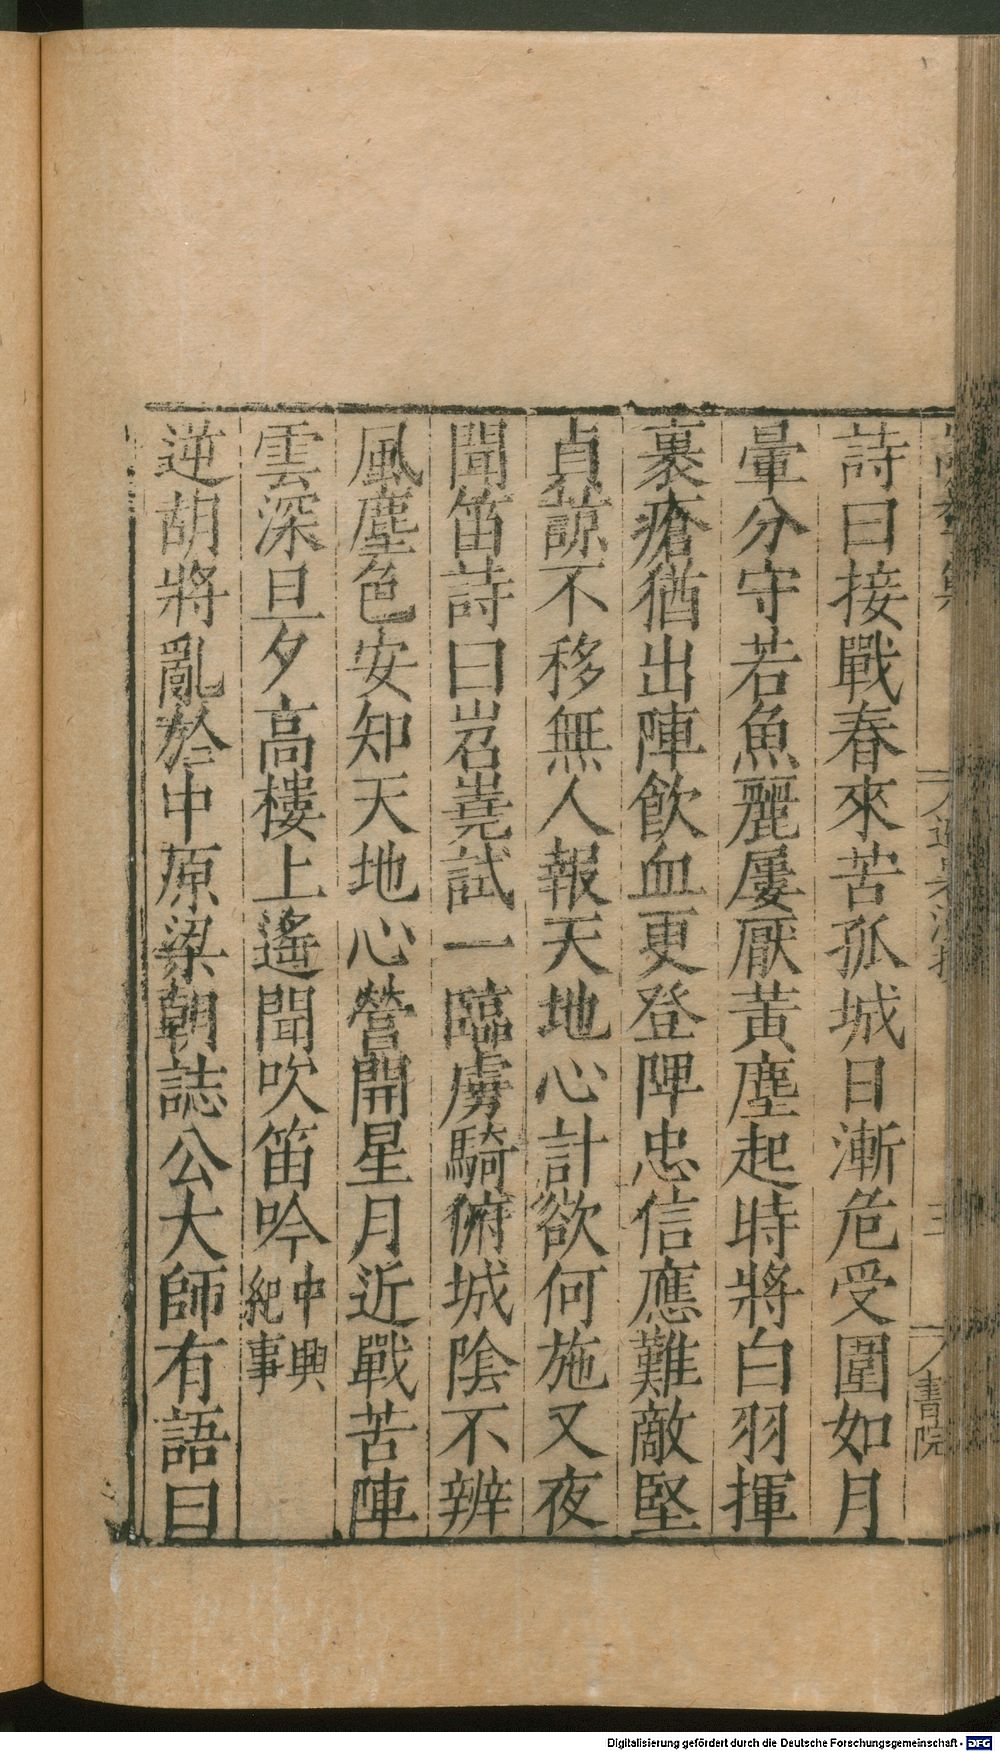 詩曰接戰春來苦孤城日漸危受圍如月
暈分守若魚麗屢厭黃塵起時將白羽揮
裹瘡猶出陣飲血更登陴忠信應難敵堅
貞諒不移無人報天地心計欲何施又夜
聞笛詩曰岧嶤試一臨虜騎俯城陰不辨
風塵色安知天地心營開星月近戰苦陣
雲深旦夕高樓上遙聞吹笛吟中興紀事
逆胡將亂於中原梁朝誌公大師有語曰
書院
Digitalisierung gefördert durch die Deutsche Forschungsgemeinschaft - DFG